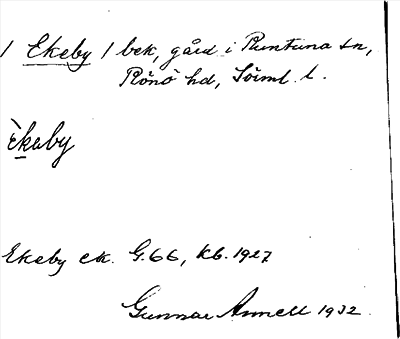 / Ekeby / bek, gård i Runtuna sn,
Rönö hd, Söiml. l.
Èkaby
Ekeby ek. G.66, Kb. 1927
Gunnar Annell 1932.